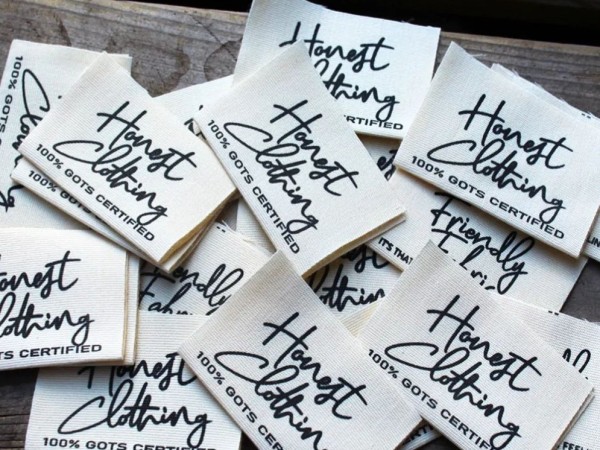 Honest
Clothing
100% GOTS CERTIFIED
100% GOTS
Honest
Clothing
100% GOTS CERTIFIED
100% GOTS
Honest
Clothing
100% GOTS CERTIFIED
Honest
Clothing
100% GOTS CERTIFIED
Friendly
Fabric
IT'S THAT
Honest
Clothing
100% GOTS CERTIFIED
Friendly
Honest
Clothing
100% GOTS CERTIFIED
Honest
Clothing
100% GOTS CERTIFIED
Honest
Clothing
100% GOTS CERTIFIED